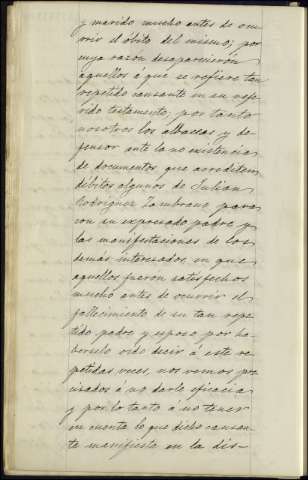 y marido mucho antes de ocu-
rrir el óbito del mismo; por
cuya razon desaparecieron
aquellos á que se refiere tan
repetido causante en su refe-
rido testamento, por tanto
nosotros los albaceas y de-
fensor ante la no existencia
de documentos que acrediten
débitos algunos de Julian
Rodriguez Zambrano para
con su expresado padre y
las manifestaciones de los
demás interesados, en que
aquellos fueron satisfechos
mucho antes de ocurrir el
fallecimiento de su tan repe-
tido padre y esposo por ha-
berselo oido decir á éste re-
petidas veces, nos vemos pre-
cisados á no darle eficacia
y por lo tanto á no tener
en cuenta lo que dicho causan-
te manifiesta en la dis-